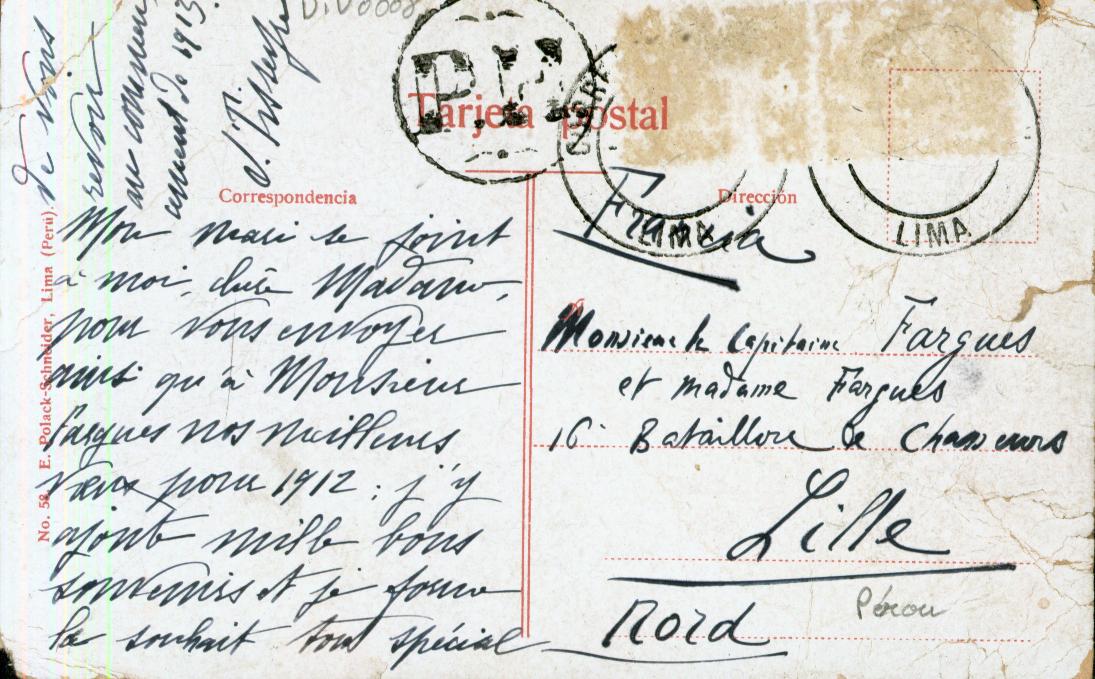 Tarjeta postal
Correspondencia
Dirección
LIMA
LIMA
No. 58 E. Polack-Schneider, Lima (Perú).
Mon mari se joint
à moi, chère Madame,
pour vous envoyer
ainsi qu'à Monsieur
Fargues nos meilleurs
vœux pour 1912 : j'y
ajoute mille bons
souvenirs et je forme
le souhait tout spécial
de vous
revoir
au commen
cement de 1913.
Francia
Monsieur le Capitaine Fargues
et madame Fargues
16e Bataillon de Chasseurs
Lille
Nord
Pérou